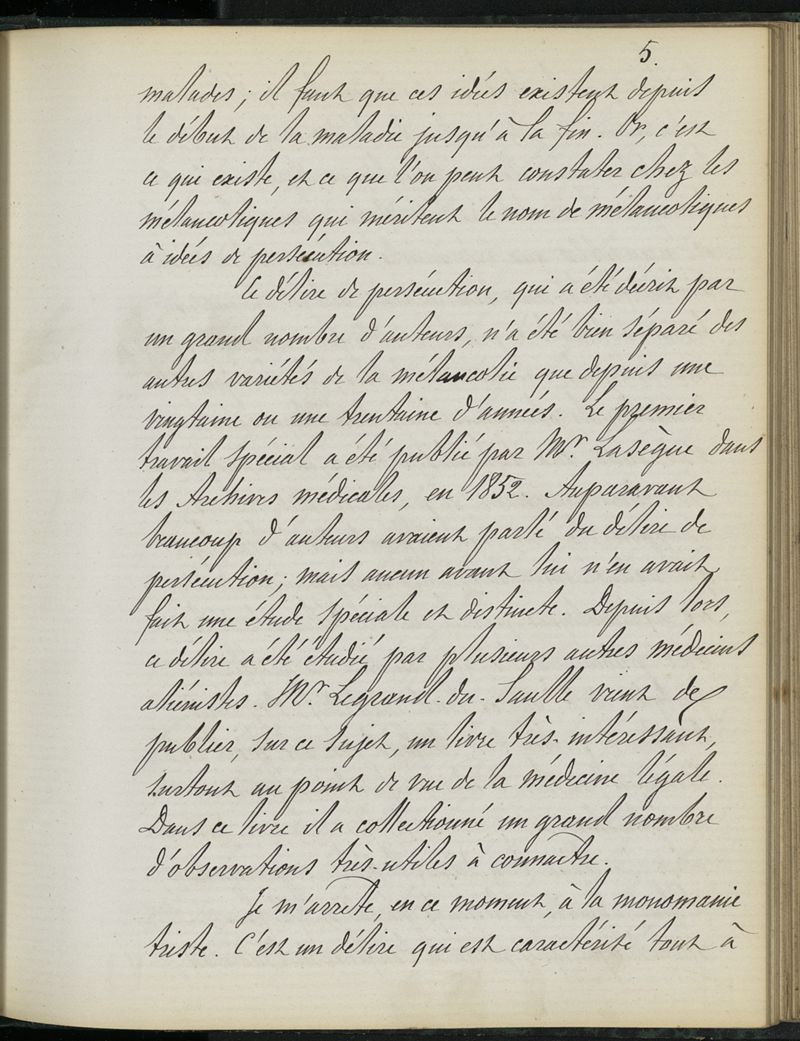 5.
malades; il faut que ces idées existent depuis
le début de la maladie jusqu'à la fin. Or, c'est
ce qui existe, et ce que l'on peut constater chez les
mélancoliques qui méritent le nom de mélancoliques
à idées de persécution.
Ce délire de persécution, qui a été décrit par
un grand nombre d'auteurs, n'a été bien séparé des
autres variétés de la mélancolie que depuis une
vingtaine ou une trentaine d'années. Le premier
travail spécial a été publié par Mr. Lasègue dans
les Archives médicales, en 1852. Auparavant
beaucoup d'auteurs avaient parlé du délire de
persécution; mais aucun avant lui n'en avait
fait une étude spéciale et distincte. Depuis lors,
ce délire a été étudié par plusieurs autres médecins
aliénistes. Mr. Legrand-du-Saulle vient de
publier, sur ce sujet, un livre très-intéressant,
surtout au point de vue de la médecine légale.
Dans ce livre il a collectionné un grand nombre
d'observations très-utiles à connaître.
Je m'arrête, en ce moment, à la monomanie
triste. C'est un délire qui est caractérisé tout à